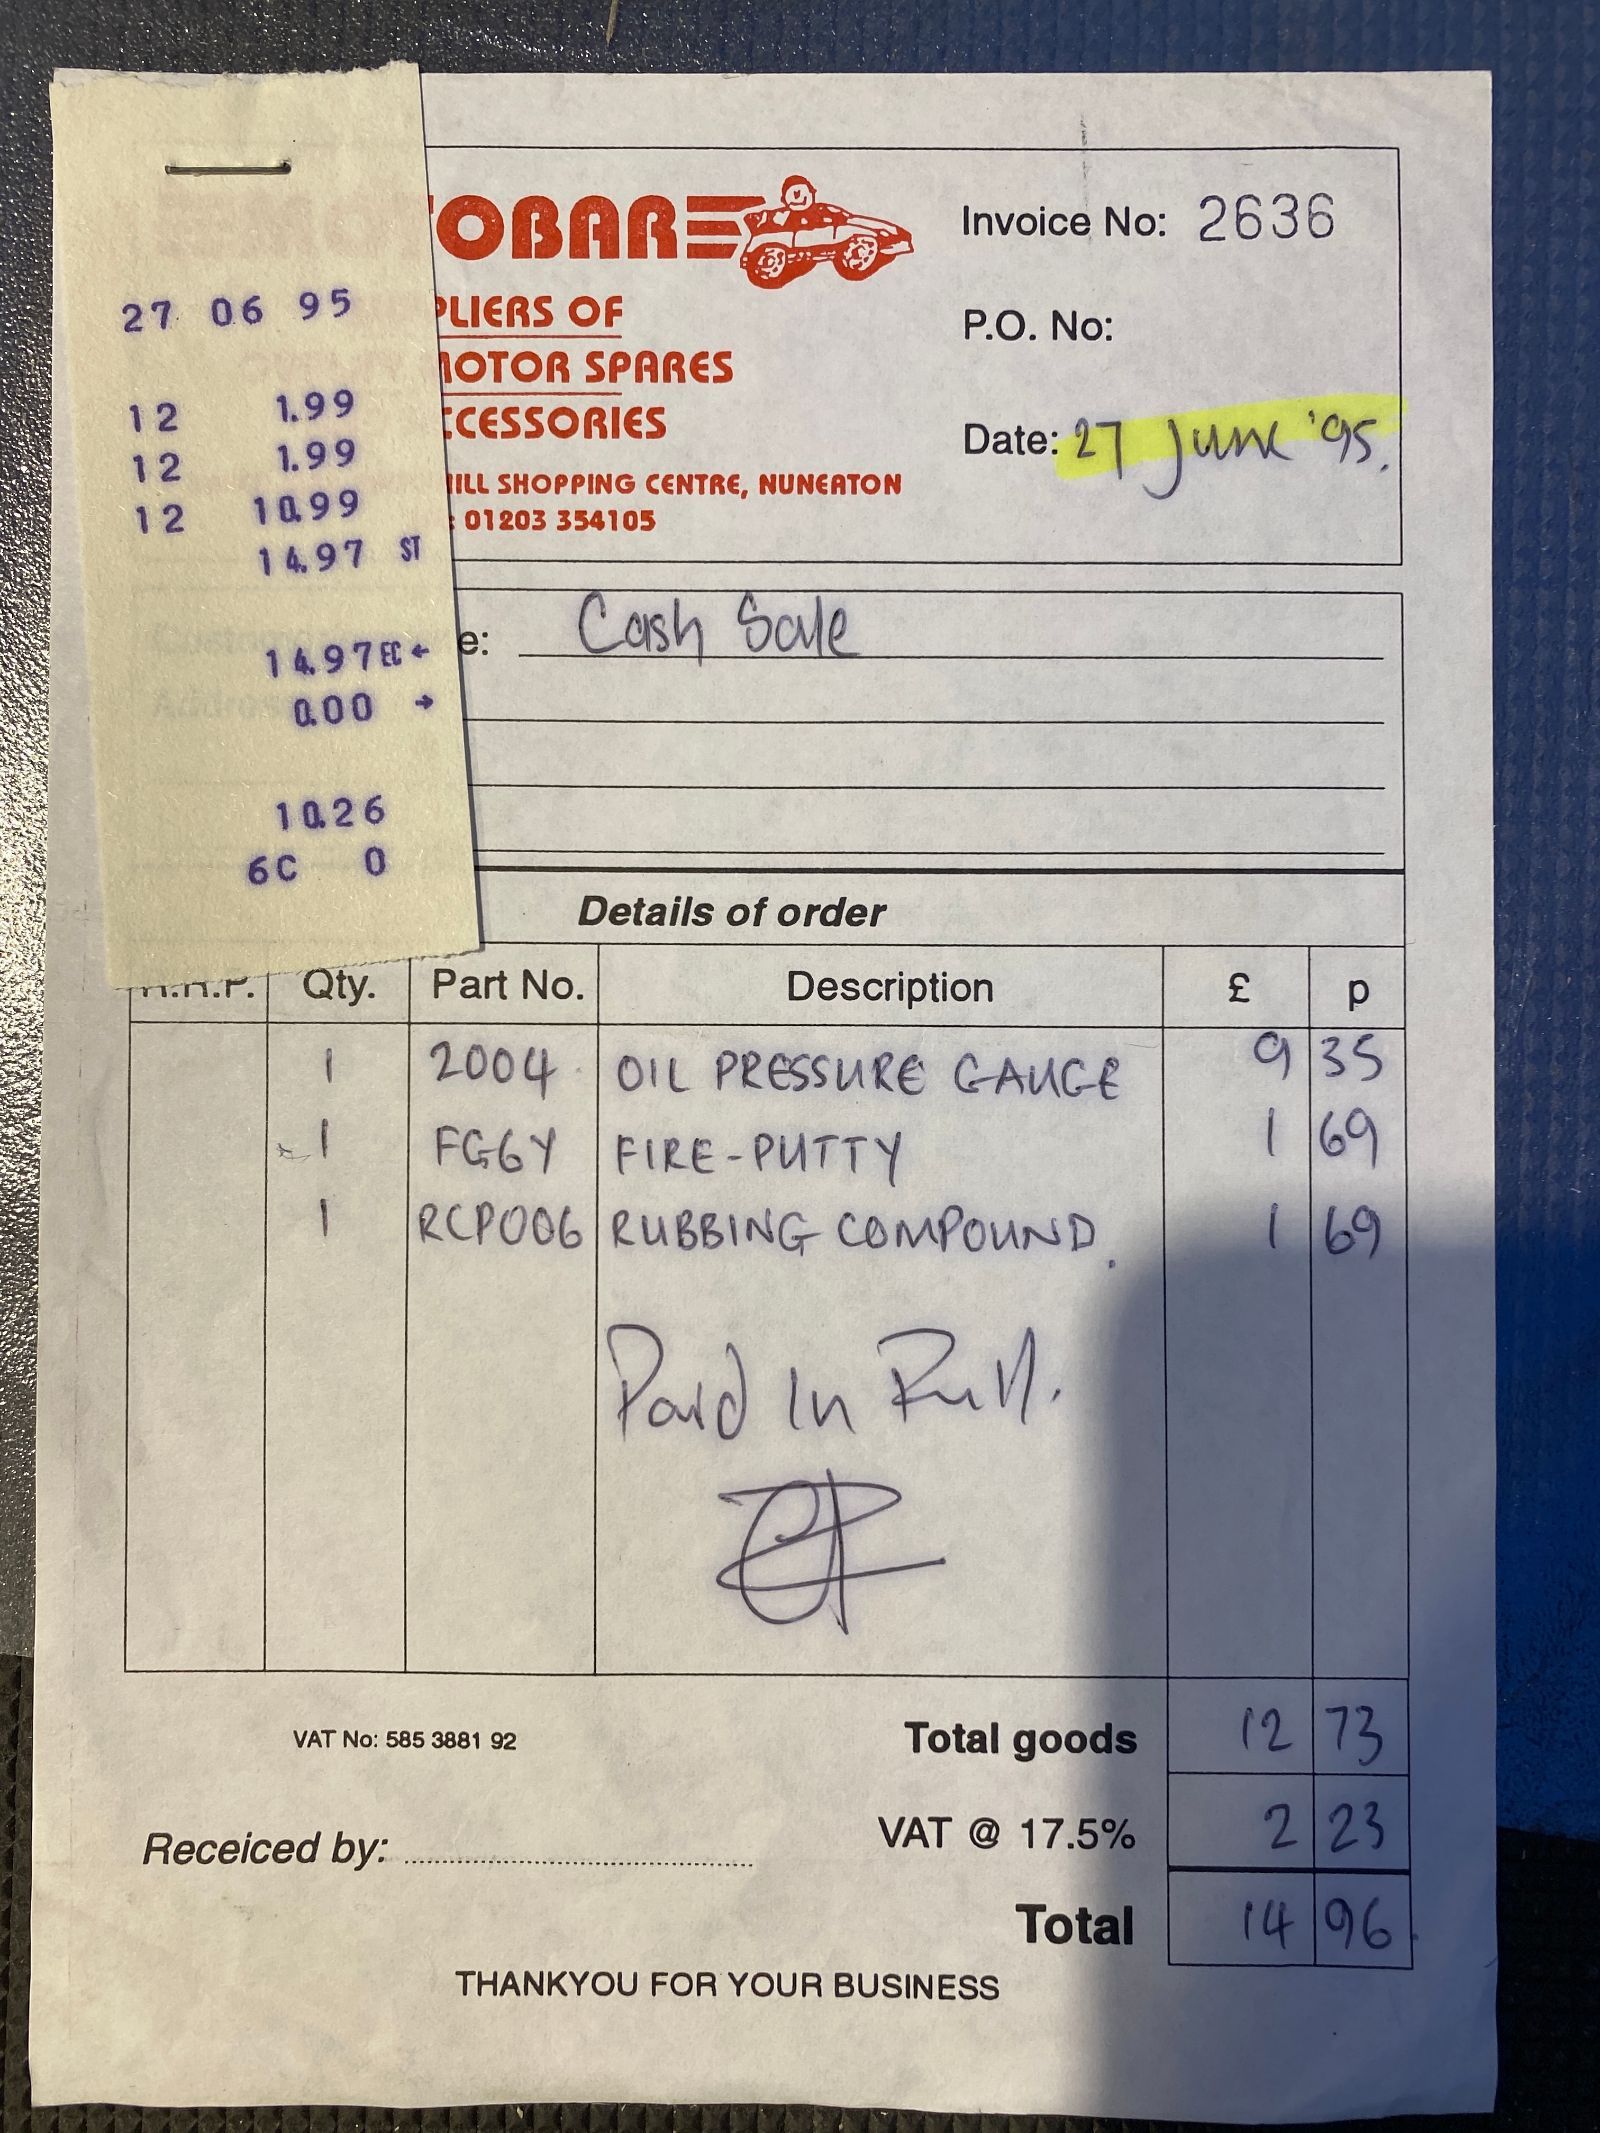 27 06 95
12 1.99
12 1.99
12 10.99
14.97 ST
14.97 EC ←
0.00 →
10.26
6C 0
OBARE
PLIERS OF
MOTOR SPARES
CCESSORIES
HILL SHOPPING CENTRE, NUNEATON
: 01203 354105
Invoice No: 2636
P.O. No:
Date: 27 June '95.
e: Cash Sale
Details of order
R.R.P. Qty. Part No. Description £ p
1 2004 OIL PRESSURE GAUGE 9 35
1 FG6Y FIRE-PUTTY 1 69
1 RCP006 RUBBING COMPOUND. 1 69
Paid In Full.
VAT No: 585 3881 92
Total goods 12 73
VAT @ 17.5% 2 23
Receiced by:
Total 14 96
THANKYOU FOR YOUR BUSINESS